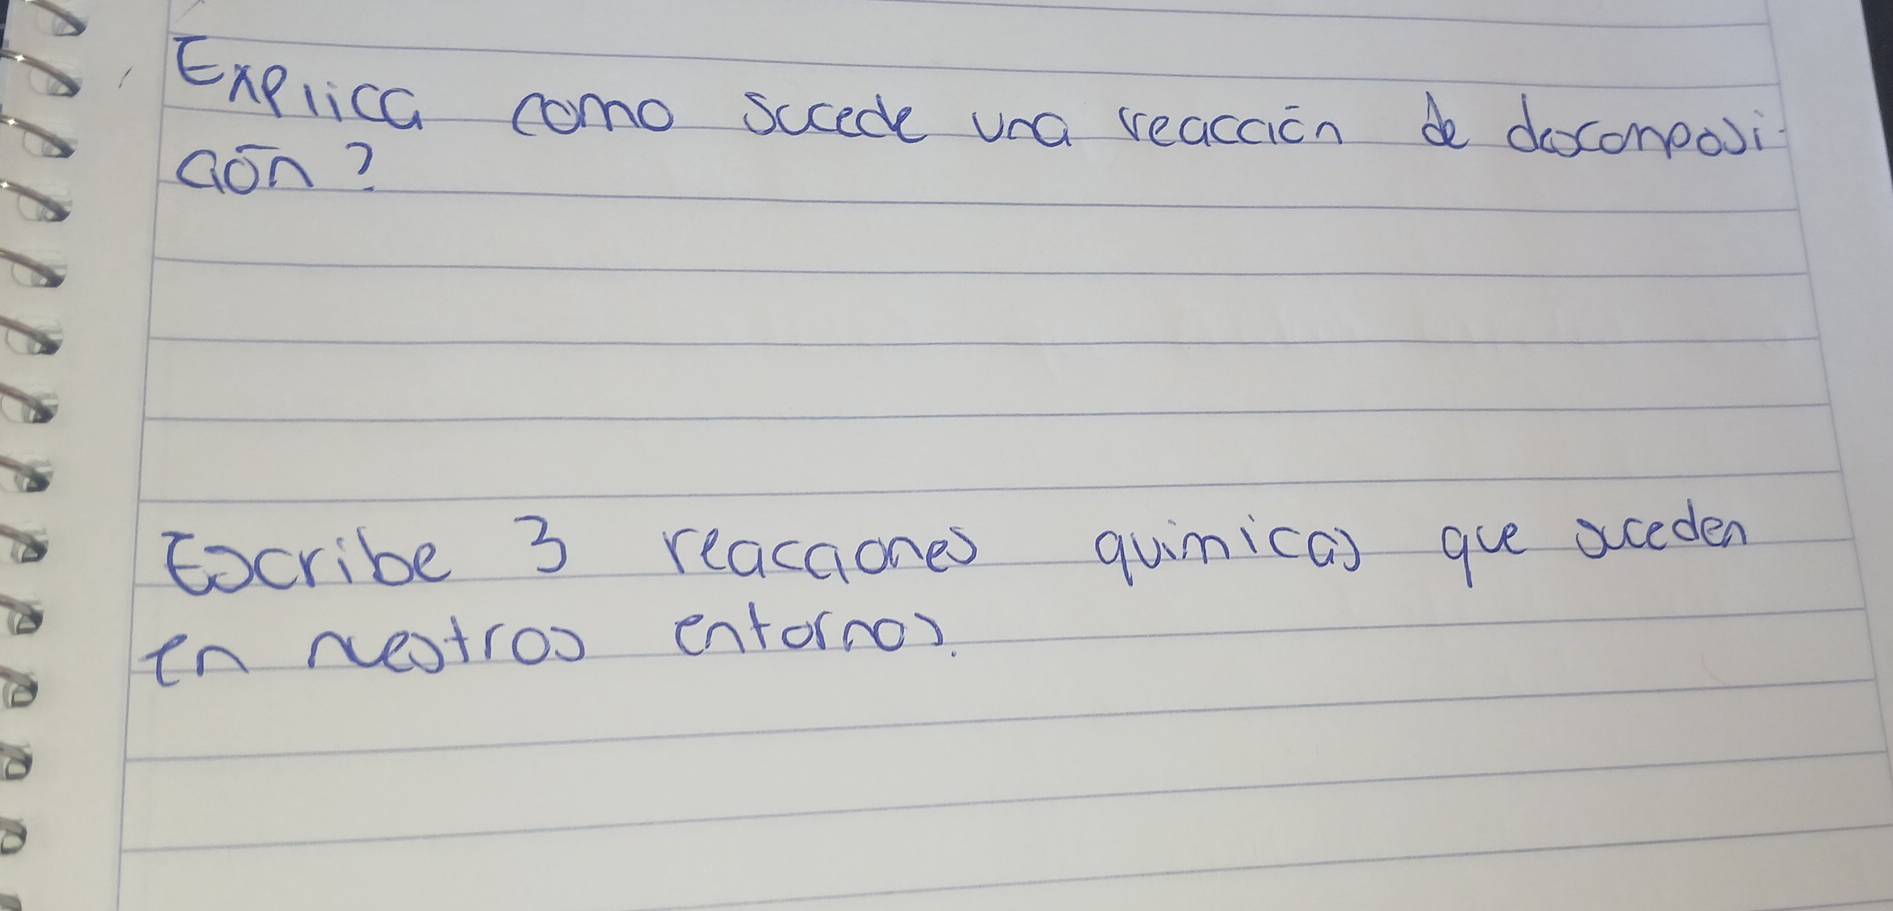 Explica como sucede una reacción de descomposi-
ción?
Escribe 3 reacciones quimicas que suceden
en nuestros entornos.